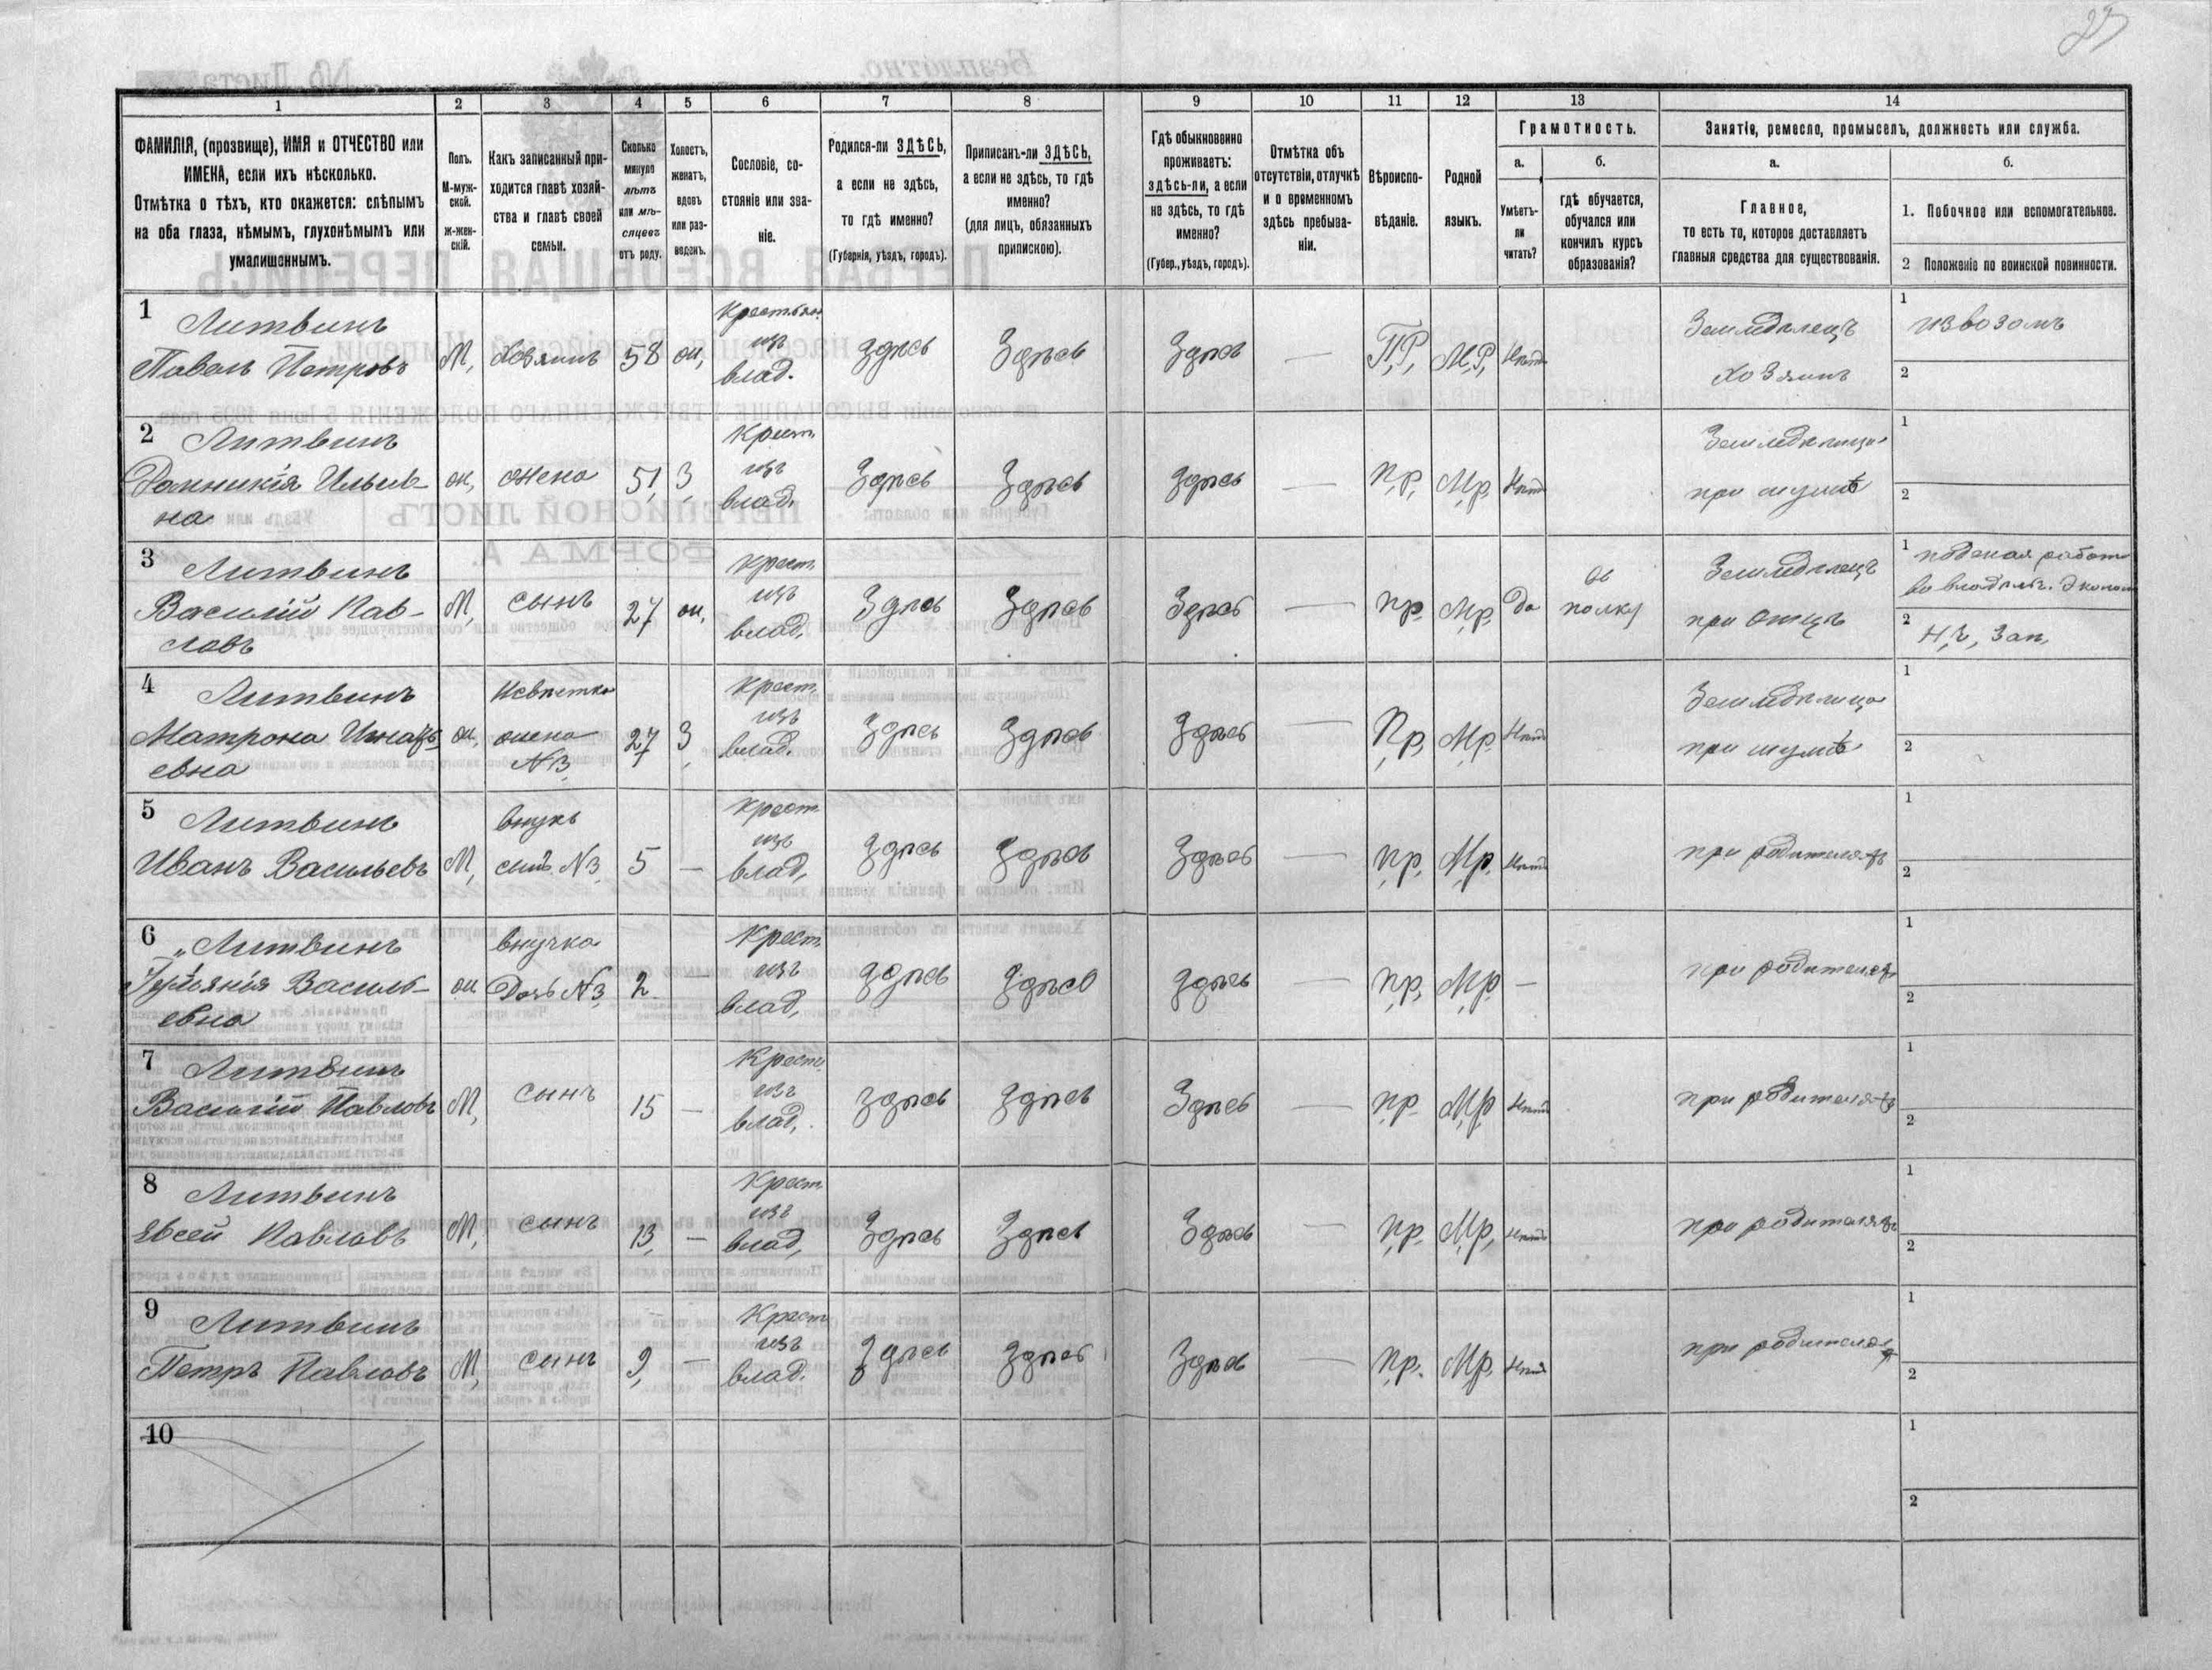 25
1
2
3
4
5
6
7
8
9
10
11
12
13
14
ФАМИЛІЯ, (прозвище), ИМЯ и ОТЧЕСТВО или
ИМЕНА, если ихъ нѣсколько.
Отмѣтка о тѣхъ, кто окажется: слѣпымъ
на оба глаза, нѣмымъ, глухонѣмымъ или
умалишеннымъ.
Полъ.
М-муж-
ской.
Ж-жен-
скій.
Какъ записанный при-
ходится главѣ хозяй-
ства и главѣ своей
семьи.
Сколько
минуло
лѣтъ
или мѣ-
сяцевъ
отъ роду.
Холостъ,
женатъ,
вдовъ
или раз-
веденъ.
Сословіе, со-
стояніе или зва-
ніе.
Родился-ли ЗДѢСЬ,
а если не здѣсь,
то гдѣ именно?
(Губернія, уѣздъ, городъ).
Приписанъ-ли ЗДѢСЬ,
а если не здѣсь, то гдѣ
именно?
(для лицъ, обязанныхъ
припискою).
Гдѣ обыкновенно
проживаетъ:
здѣсь-ли, а если
не здѣсь, то гдѣ
именно?
(Губер., уѣздъ, городъ).
Отмѣтка объ
отсутствіи, отлучкѣ
и о временномъ
здѣсь пребыва-
ніи.
Вѣроиспо-
вѣданіе.
Родной
языкъ.
Грамотность.
а.
Умѣетъ-
ли
читать?
б.
гдѣ обучается,
обучался или
кончилъ курсъ
образованія?
Занятіе, ремесло, промыселъ, должность или служба.
а.
Главное,
то есть то, которое доставляетъ
главныя средства для существованія.
б.
1. Побочное или вспомогательное.
2 Положеніе по воинской повинности.
1 Литвинъ
Павелъ Петровъ
М, Хозяинъ 58 ж,
Крестьян.
изъ
влад.
Здѣсь Здѣсь Здѣсь — П,Р, М,Р, Нѣтъ
Земледѣлецъ
Хозяинъ
1 извозомъ
2
2 Литвинъ
Домникія Ильи-
на
ж, жена 51 З
Крест.
изъ
влад.
Здѣсь Здѣсь Здѣсь — п,р, М,р, Нѣтъ
Земледѣлица
при мужѣ
1
2
3 Литвинъ
Василій Пав-
ловъ
М, сынъ 27 ж,
Крест.
изъ
влад.
Здѣсь Здѣсь Здѣсь — пр. М,р, да
въ
полку
Земледѣлецъ
при отцѣ
1 поденая работ
во владѣлъ. Эконом
2 Н,Ч, Зап,
4 Литвинъ
Матрона Игнать
евна
ж,
Невѣстка
жена
N3
27 З
Крест.
изъ
влад.
Здѣсь Здѣсь Здѣсь — Пр, М,р, Нѣтъ
Земледѣлица
при мужѣ
1
2
5 Литвинъ
Иванъ Васильевъ
М,
внукъ
сынъ N3
5 —
Крест.
изъ
влад,
Здѣсь Здѣсь Здѣсь — пр, М,р, Нѣтъ
при родителяхъ
1
2
6 Литвинъ
Василь-
евна
ж
внучка
Дочь N3
2 —
Крест.
изъ
влад,
Здѣсь Здѣсь Здѣсь — пр, М,р —
при родителях
1
2
7 Литвинъ
Василій Павловъ
М, сынъ 15 —
Крест.
изъ
влад,
Здѣсь Здѣсь Здѣсь — пр. М,р, Нѣтъ
при родителяхъ
1
2
8 Литвинъ
Евсей Павловъ
М, сынъ 13, —
Крест.
изъ
влад,
Здѣсь Здѣсь Здѣсь — пр. М,р, Нѣтъ
при родителяхъ
1
2
9 Литвинъ
Петръ Павловъ
М, сынъ 9, —
Крест
изъ
влад.
Здѣсь Здѣсь Здѣсь — пр. М,р, Нѣтъ
при родителях
1
2
10
1
2